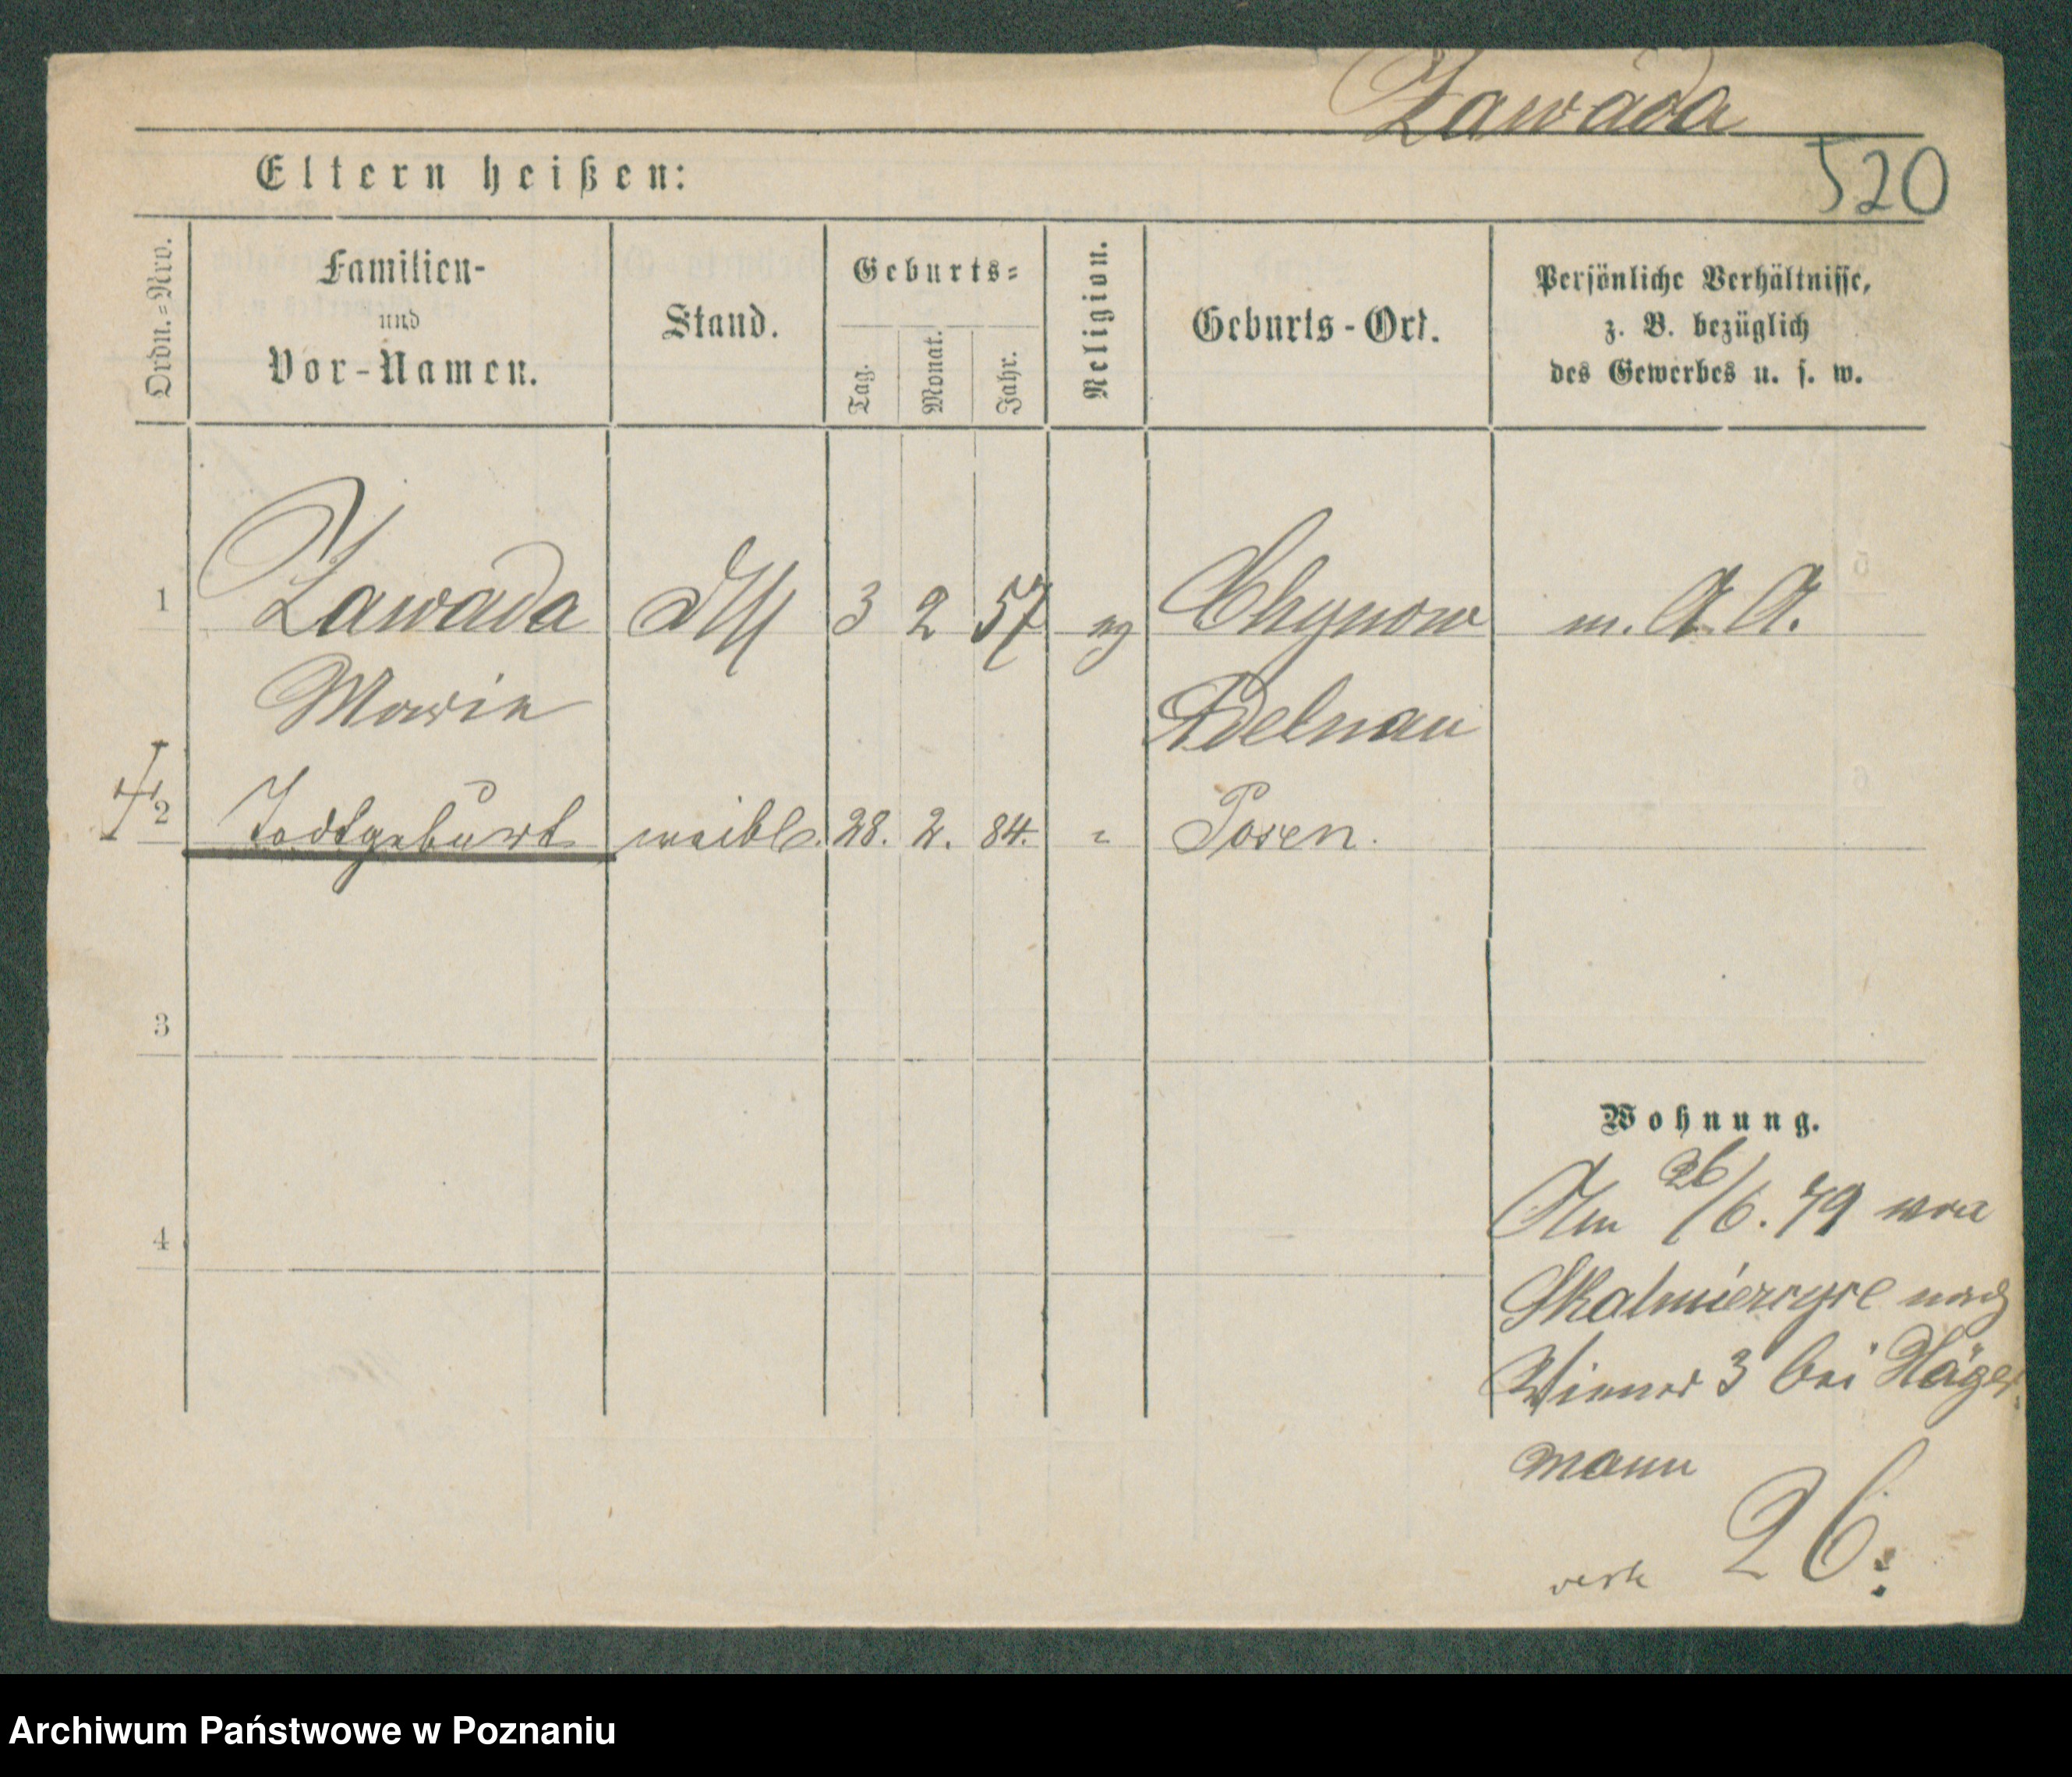 Zawada
520
Eltern heißen:
Ordn.=Nro.
Familien-
und
Vor-Namen.
Stand.
Geburts=
Tag.
Monat.
Jahr.
Religion.
Geburts-Ort.
Persönliche Verhältnisse,
z. B. bezüglich
des Gewerbes u. s. w.
1 Zawada 3 2 57 Chynow m. A. A.
Marie Adelnau
2 Todtgeburt weibl. 28. 2. 84. " Posen.
3
Wohnung.
4
Am 26/6. 79 von
Skalmierzyce nach
Wiener 3 bei Häger
mann
26.
Archiwum Państwowe w Poznaniu